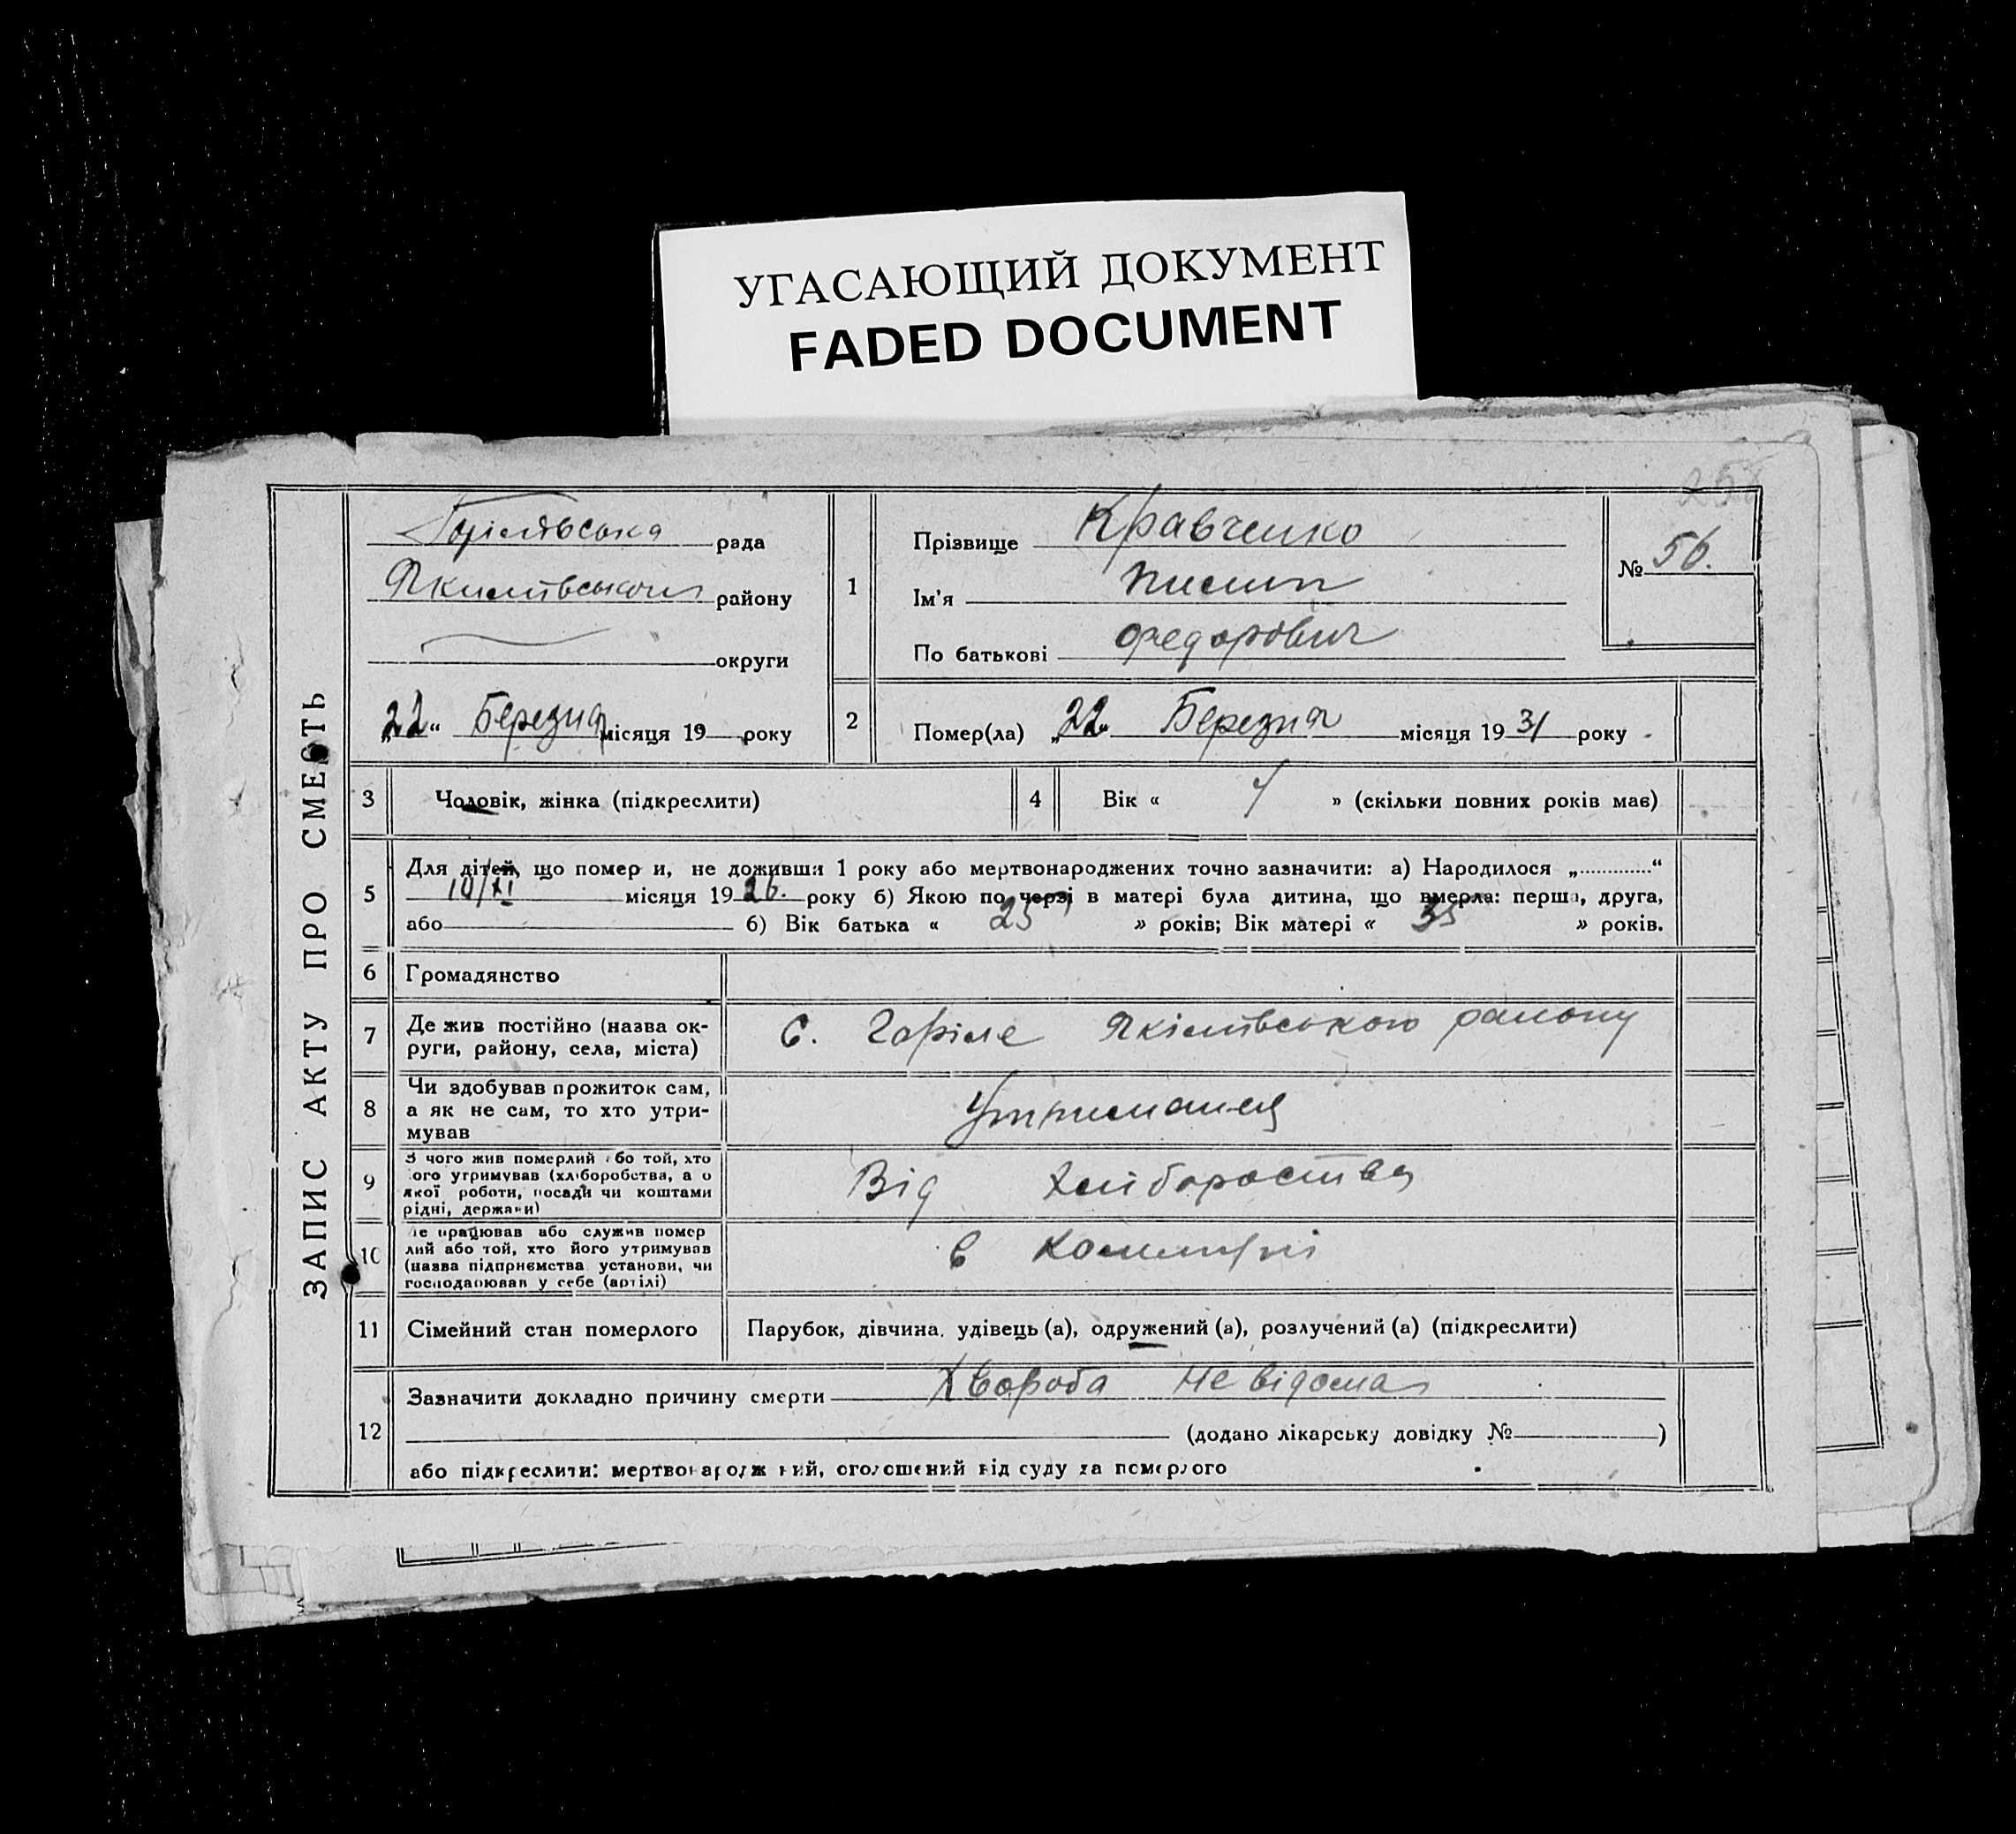 УГАСАЮЩИЙ ДОКУМЕНТ
FADED DOCUMENT
ЗАПИС АКТУ ПРО СМЕРТЬ
рада
району
округи
„22“ Березня місяця 19 року
1
Прізвище Кравченко
Ім'я Пилип
По батькові Федорович
№ 56.
2
Помер(ла) „22“ Березня місяця 19 31 року
3
Чоловік, жінка (підкреслити)
4
Вік « 4 » (скільки повних років має)
5
Для дітей, що помер и, не доживши 1 року або мертвонароджених точно зазначити: а) Народилося „.............“
10/XI місяця 19 26. року б) Якою по черзі в матері була дитина, що вмерла: перша, друга,
або б) Вік батька « » років; Вік матері « 35 » років.
6
Громадянство
7
Де жив постійно (назва ок-
руги, району, села, міста)
С. Горіле Якімівського району
8
Чи здобував прожиток сам,
а як не сам, то хто утри-
мував
Утримання
9
З чого жив померлий або той, хто
його утримував (хліборобства, а о
якої роботи, посади чи коштами
рідні, держави)
Від хліборобства
10
Де працював або служив помер
лий або той, хто його утримував
(назва підприємства установи, чи
господарював у себе (артілі)
в комуні
11
Сімейний стан померлого
Парубок, дівчина, удівець (а), одружений (а), розлучений (а) (підкреслити)
12
Зазначити докладно причину смерти Хвороба не відома
(додано лікарську довідку № )
або підкреслити: мертвонароджений, оголошений від суду за померлого